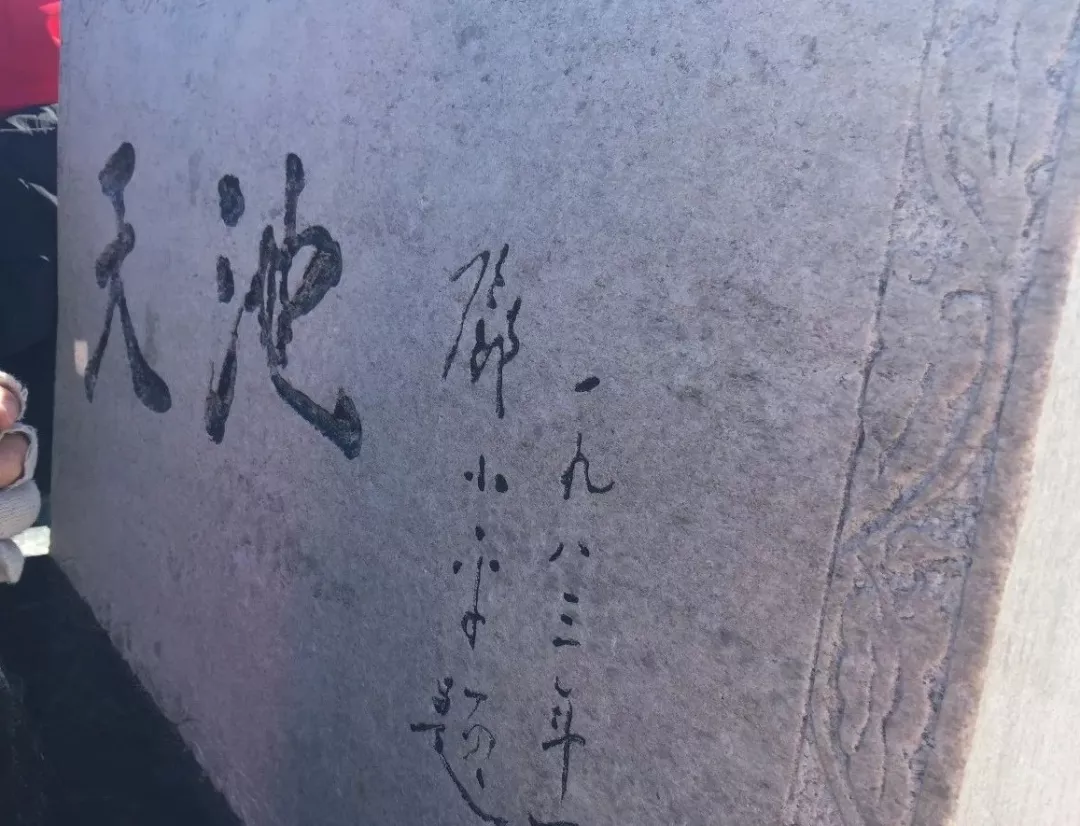 天池
邓小平题
一九八三年